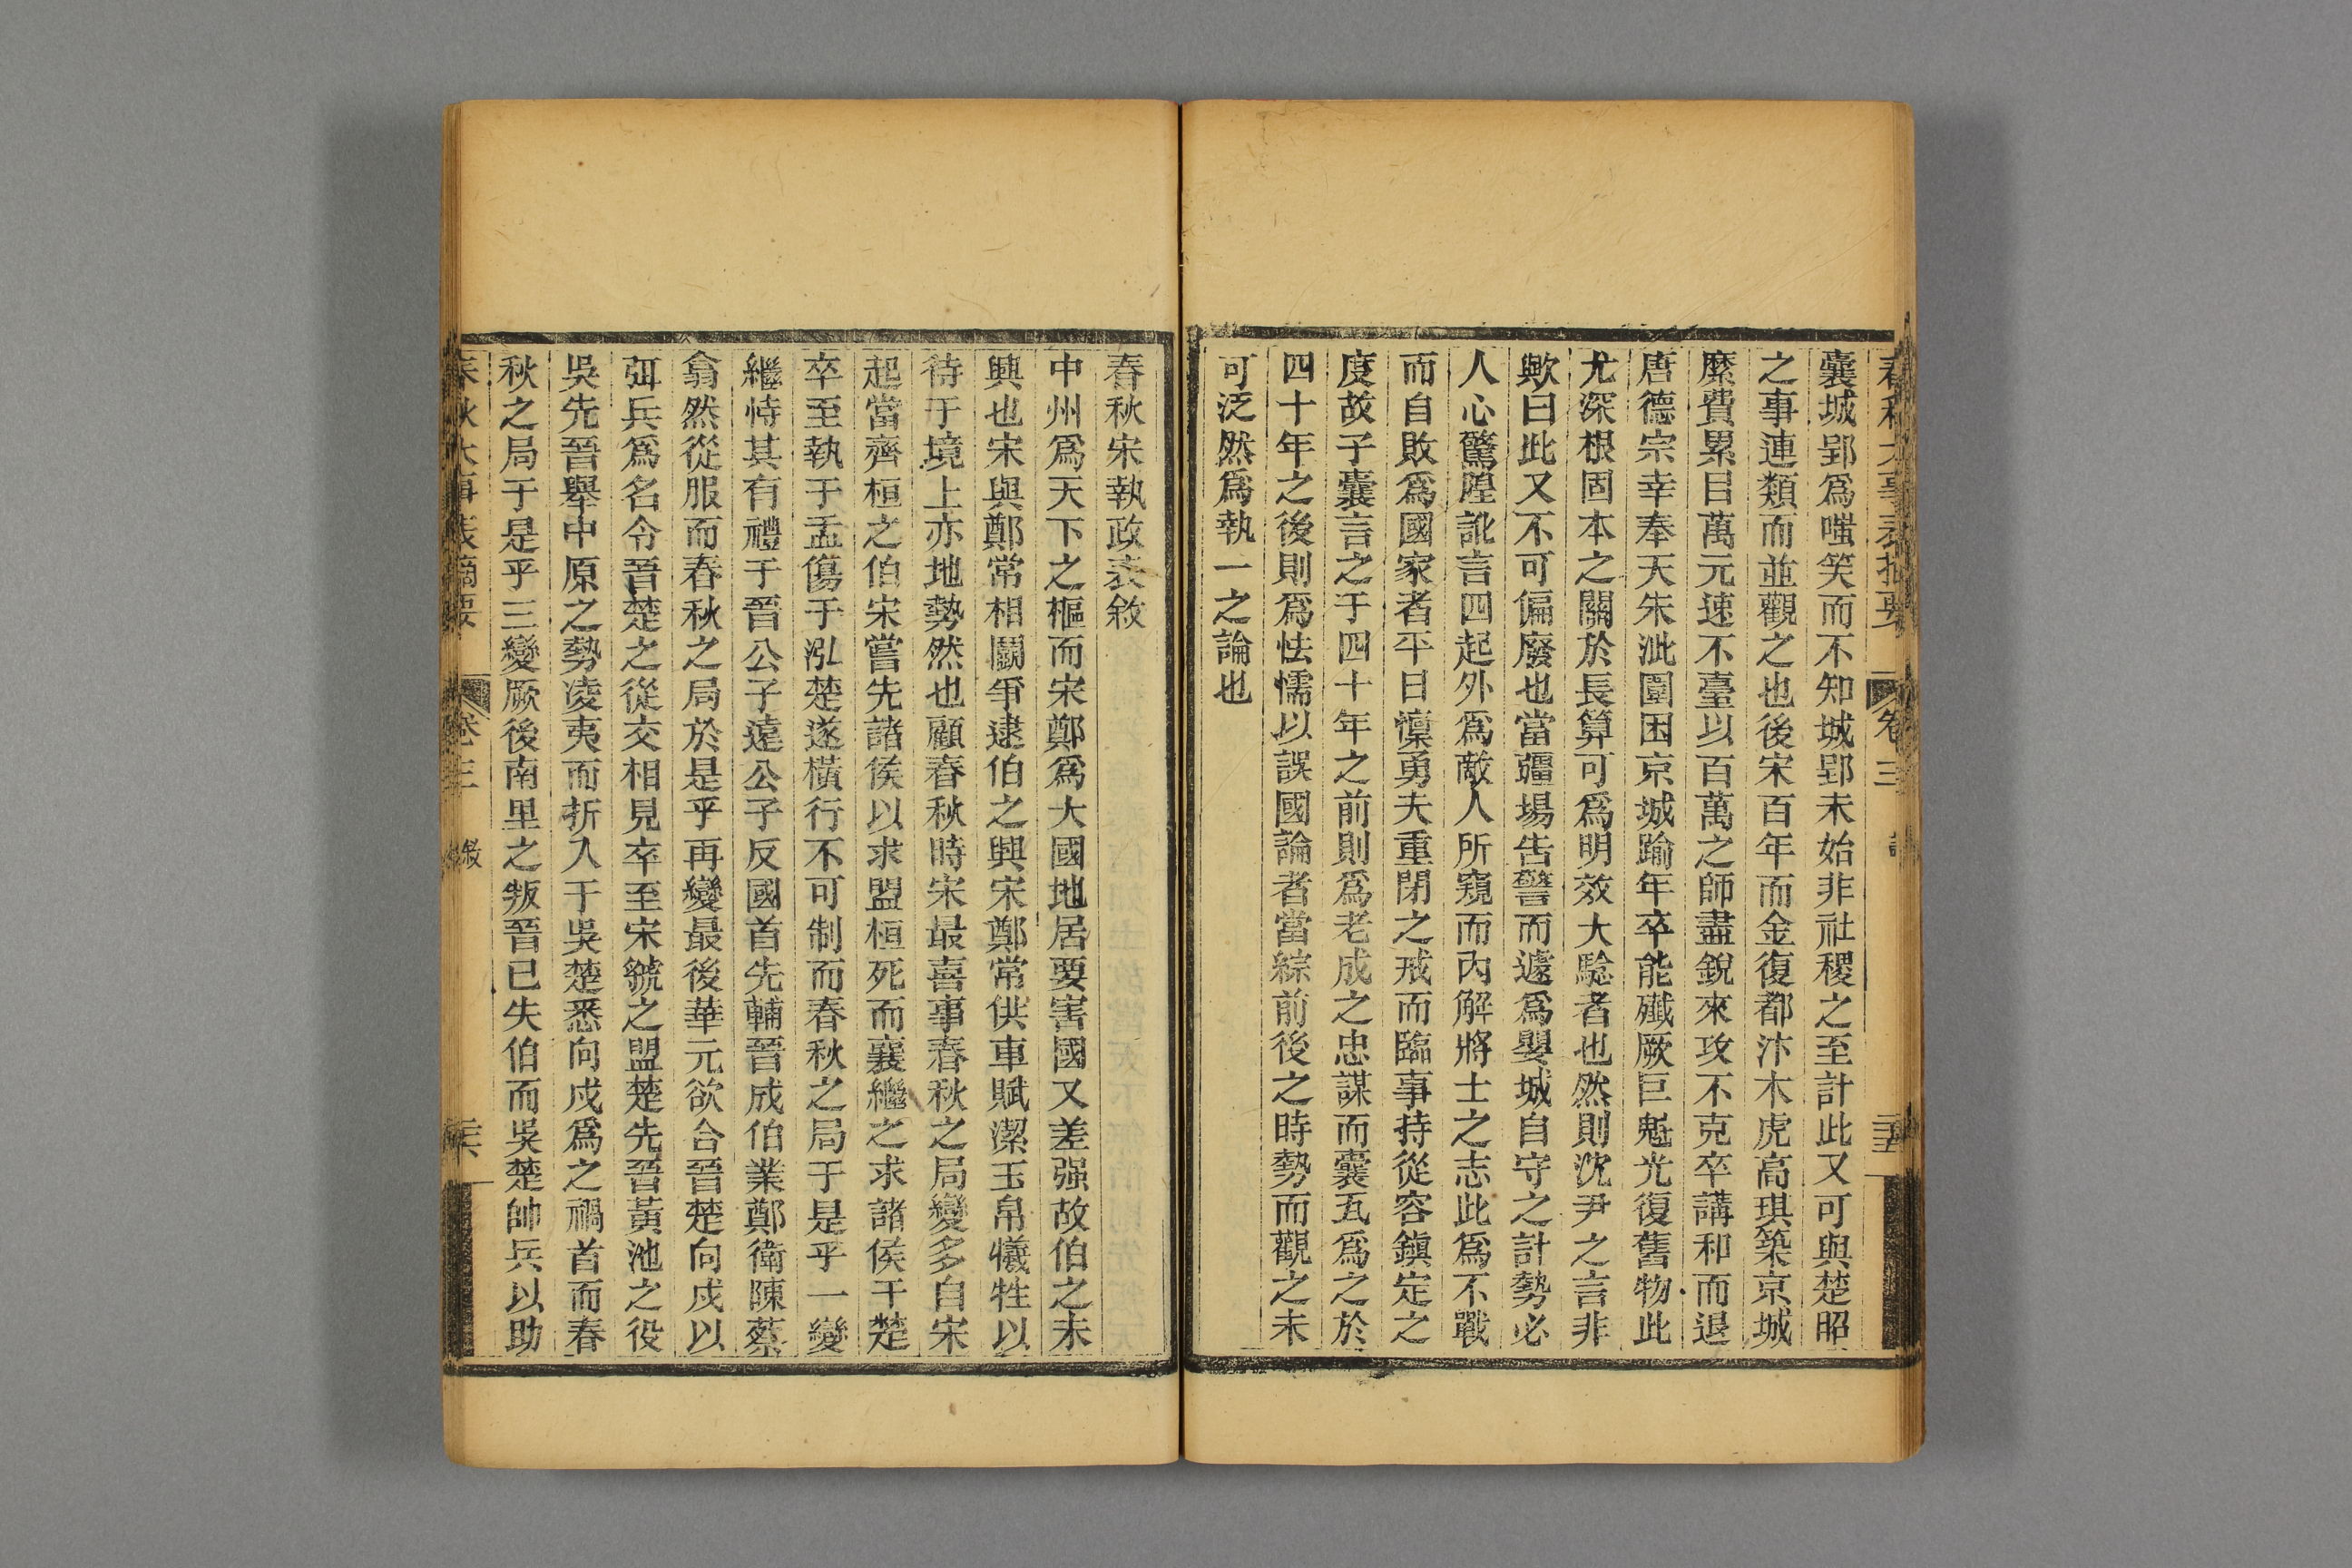 春秋大事表摘要 卷三 論 三五
囊城郢爲嗤笑而不知城郢未始非社稷之至計此又可與楚昭
之事連類而並觀之也後宋百年而金復都汴木虎高琪築京城
縻費累目萬元速不臺以百萬之師盡銳來攻不克卒講和而退
唐德宗幸奉天朱泚圍困京城踰年卒能殲厥巨魁光復舊物此
尤深根固本之關於長算可爲明效大騐者也然則沈尹之言非
歟曰此又不可偏廢也當疆場告警而遽爲嬰城自守之計勢必
人心驚隍訛言四起外爲敵人所窺而內解將士之志此爲不戰
而自敗爲國家者平日懍勇夫重閉之戒而臨事持從容鎮定之
度故子囊言之于四十年之前則爲老成之忠謀而囊瓦爲之於
四十年之後則爲怯懦以誤國論者當綜前後之時勢而觀之未
可泛然爲執一之論也
春秋宋執政表敘
中州爲天下之樞而宋鄭爲大國地居要害國又差强故伯之未
興也宋與鄭常相鬬爭逮伯之興宋鄭常供車賦潔玉帛犧牲以
待于境上亦地勢然也顧春秋時宋最喜事春秋之局變多自宋
起當齊桓之伯宋嘗先諸侯以求盟桓死而襄繼之求諸侯于楚
卒至執于盂傷于泓楚遂橫行不可制而春秋之局于是乎一變
繼恃其有禮于晉公子遠公子反國首先輔晉成伯業鄭衛陳蔡
翕然從服而春秋之局於是乎再變最後華元欲合晉楚向戌以
弭兵爲名令晉楚之從交相見卒至宋虢之盟楚先晉黃池之役
吳先晉舉中原之勢凌夷而折入于吳楚悉向戌爲之禍首而春
秋之局于是乎三變厥後南里之叛晉已失伯而吳楚帥兵以助
春秋大事表摘要 卷三 敘 三六